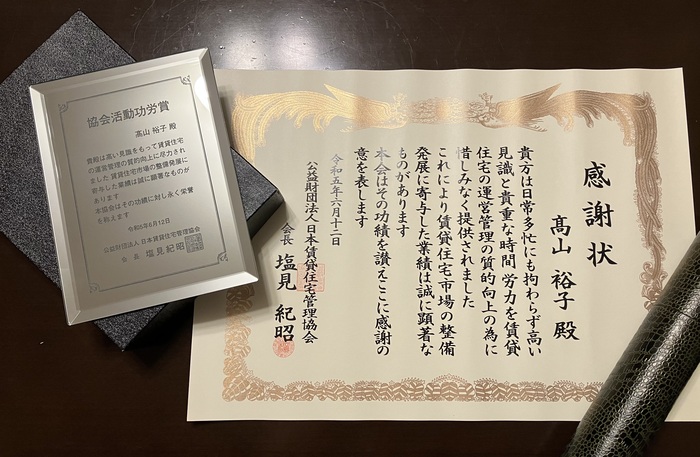 協会活動功労賞
高山 裕子 殿
貴殿は高い見識をもって賃貸住宅
の運営管理の質的向上に尽力され
ました 賃貸住宅市場の整備発展に
寄与した業績は誠に顕著なものが
あります
本協会はその功績に対し永く栄誉
を称えます
令和5年6月12日
公益財団法人 日本賃貸住宅管理協会
会 長 塩見紀昭
感謝状
髙山 裕子 殿
貴方は日常多忙にも拘わらず高い
見識と貴重な時間 労力を賃貸
住宅の運営管理の質的向上の為に
惜しみなく提供されました
これにより賃貸住宅市場の整備
発展に寄与した業績は誠に顕著な
ものがあります
本会はその功績を讃えここに感謝の
意を表します
令和五年六月十二日
公益財団法人日本賃貸住宅管理協会
会長 塩見 紀昭